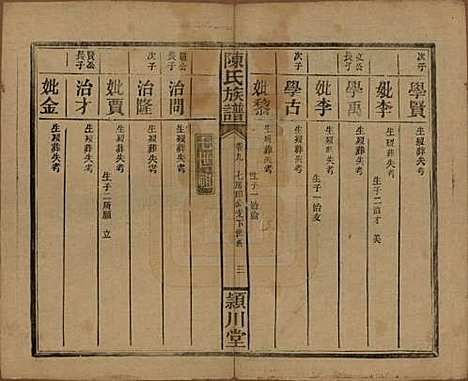 次子
學賢
生歿葬失考
妣李
生歿葬失考
生子二治才 美
文公長子
學禹
生歿葬失考
妣李
生歿葬失考
生子一治友
次子
學古
生歿葬失考
妣黎
生歿葬失考
生子一治
陳氏族譜
卷九
七房
公支下世系
三
潁川堂
公長子
治問
生歿葬失考
次子
治隆
生歿葬失考
妣賈
生歿葬失考
生子二所願 立
賢公長子
治才
生歿葬失考
妣金
生歿葬失考